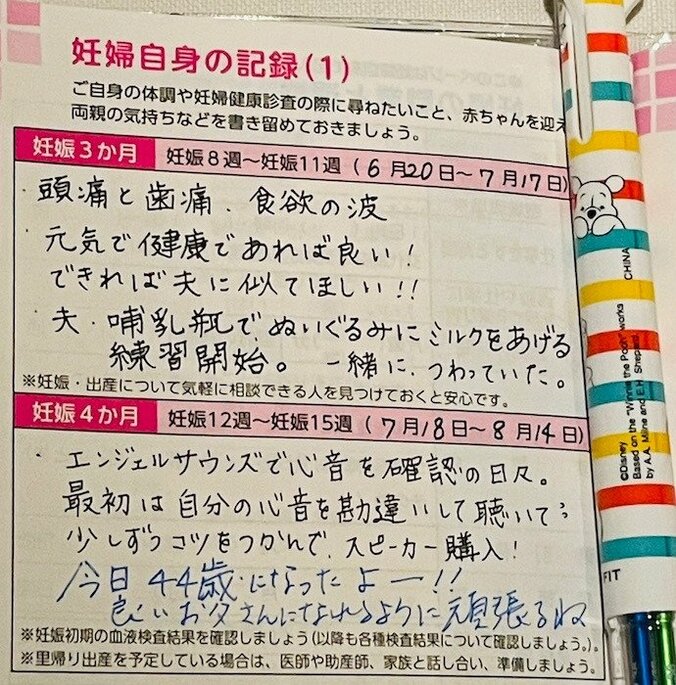 妊婦自身の記録(1)
ご自身の体調や妊婦健康診査の際に尋ねたいこと、赤ちゃんを迎え
両親の気持ちなどを書き留めておきましょう。
妊娠3か月 妊娠8週～妊娠11週(6月20日～7月17日)
・頭痛と歯痛、食欲の波
・元気で健康であれば良い！
できれば夫に似てほしい！！
・夫・哺乳瓶でぬいぐるみにミルクをあげる
練習開始。一緒に、つわっていた。
※妊娠・出産について気軽に相談できる人を見つけておくと安心です。
妊娠4か月 妊娠12週～妊娠15週(7月18日～8月14日)
・エンジェルサウンズで心音を確認の日々。
最初は自分の心音を勘違いして聴いて
少しずつコツをつかんで、スピーカー購入！
今日44歳になったよー！！
良いお父さんになれるように頑張るね
※妊娠初期の血液検査結果を確認しましょう(以降も各種検査結果について確認しましょう。)。
※里帰り出産を予定している場合は、医師や助産師、家族と話し合い、準備しましょう。
CHINA
©Disney
Based on the "Winnie the Pooh" works
by A.A. Milne and E.H. Shepard
FIT